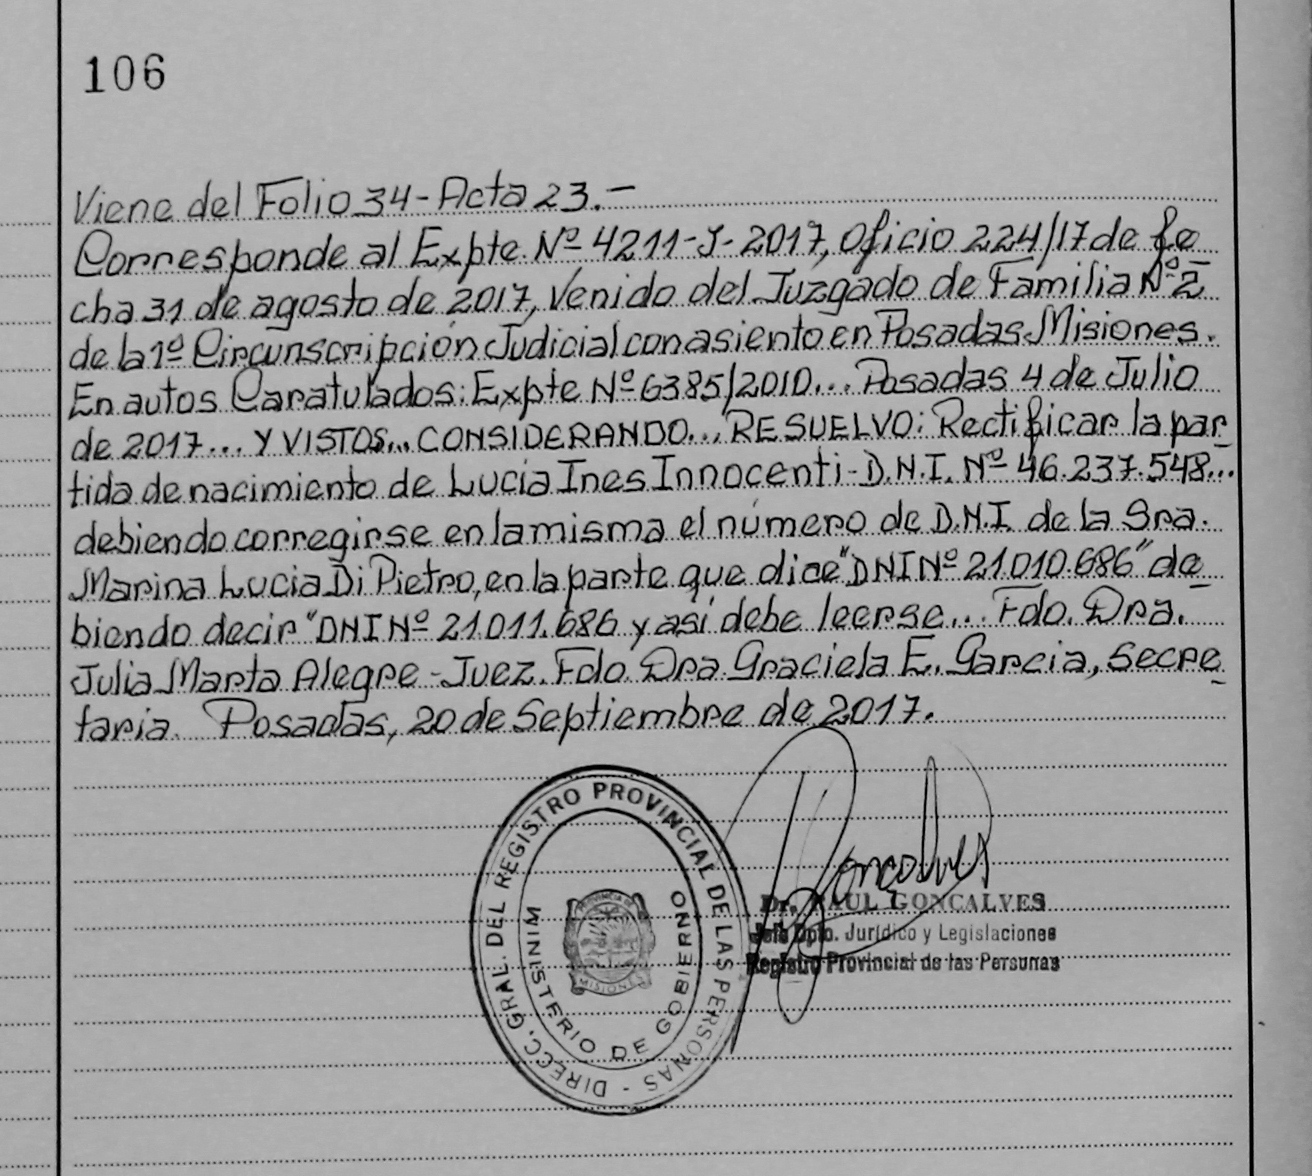 106
Viene del Folio 34-Acta 23.-
Corresponde al Expte. Nº 4211-J-2017, Oficio 224/17 de fe
cha 31 de agosto de 2017, Venido del Juzgado de Familia Nº 2
de la 1º Circunscripción Judicial con asiento en Posadas Misiones.
En autos Caratulados: Expte Nº 6385/2010... Posadas 4 de Julio
de 2017... Y VISTOS... CONSIDERANDO... RESUELVO: Rectificar la par_
tida de nacimiento de Lucia Ines Innocenti-D.N.I. Nº 46.237.548...
debiendo corregirse en la misma el número de D.N.I. de la Sra.
Marina Lucia Di Pietro, en la parte que dice "DNI Nº 21.010.686" de_
biendo decir "DNI Nº 21.011.686 y así debe leerse... Fdo. Dra.
Julia Marta Alegre-Juez. Fdo. Dra. Graciela E. Garcia, Secre_
taria. Posadas, 20 de Septiembre de 2017.
DIRECC. GRAL. DEL REGISTRO PROVINCIAL DE LAS PERSONAS -
MINISTERIO DE GOBIERNO
PROVINCIA DE
MISIONES
Goncalves
Dr. RAUL GONCALVES
Jefe Dpto. Jurídico y Legislaciones
Registro Provincial de las Personas